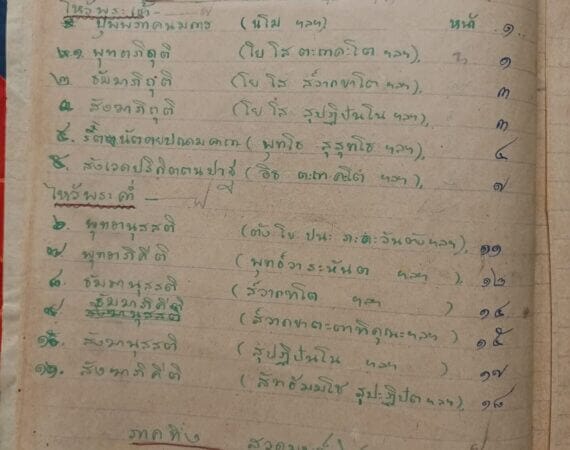 ไหว้พระเช้า -
๑ ปุพพภาคนมการ (นโม ฯลฯ) หน้า ๑.
๒. พุทธาภิถุติ (โย โส ตะถาคะโต ฯลฯ), ๑
๓ ธัมมาภิถุติ (โย โส สวากขาโต ฯลฯ), ๓
๔ สังฆาภิถุติ (โย โส สุปฏิปันโน ฯลฯ), ๓
(พุทโธ สุสุทโธ ฯลฯ), ๔
(อิธะ ตะถาคะโต ฯลฯ), ๗
ไหว้พระค่ำ -
๖. พุทธานุสสติ (ตัง โข ปนะ ภะคะวันตัง ฯลฯ), ๑๑
๗ พุทธาภิคีติ (พุทธ์วาระหันต ฯลฯ), ๑๒
๘. ธัมมานุสสติ (ส์วากขาโต ฯลฯ) ๑๔
๙ ธัมมาภิคีติ (ส์วากขาตะตาทิคุณะ ฯลฯ) ๑๕
๑๐. สังฆานุสสติ (สุปฏิปันโน ฯลฯ) ๑๗
๑๑. สังฆาภิคีติ (สัทธัมมโช สุปะฏิปัต ฯลฯ), ๑๘